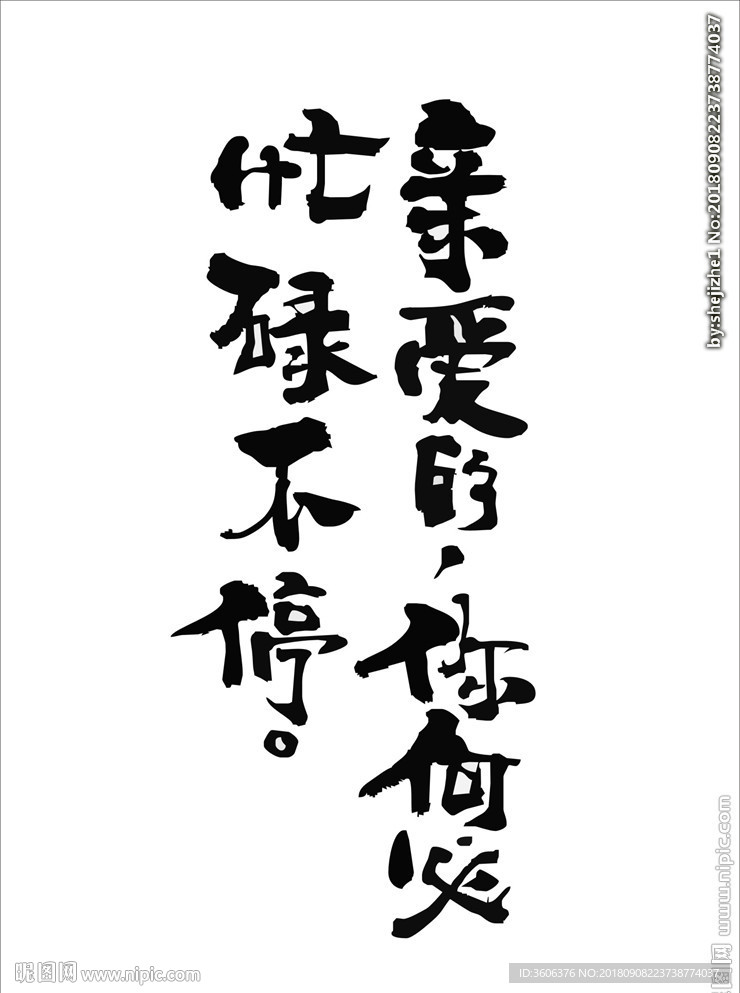 亲爱的，你何必
忙碌不停。
by:shejizhe1 No:20180908223738774037
www.nipic.com
昵图网 www.nipic.com
ID:3606376 NO:20180908223738774037